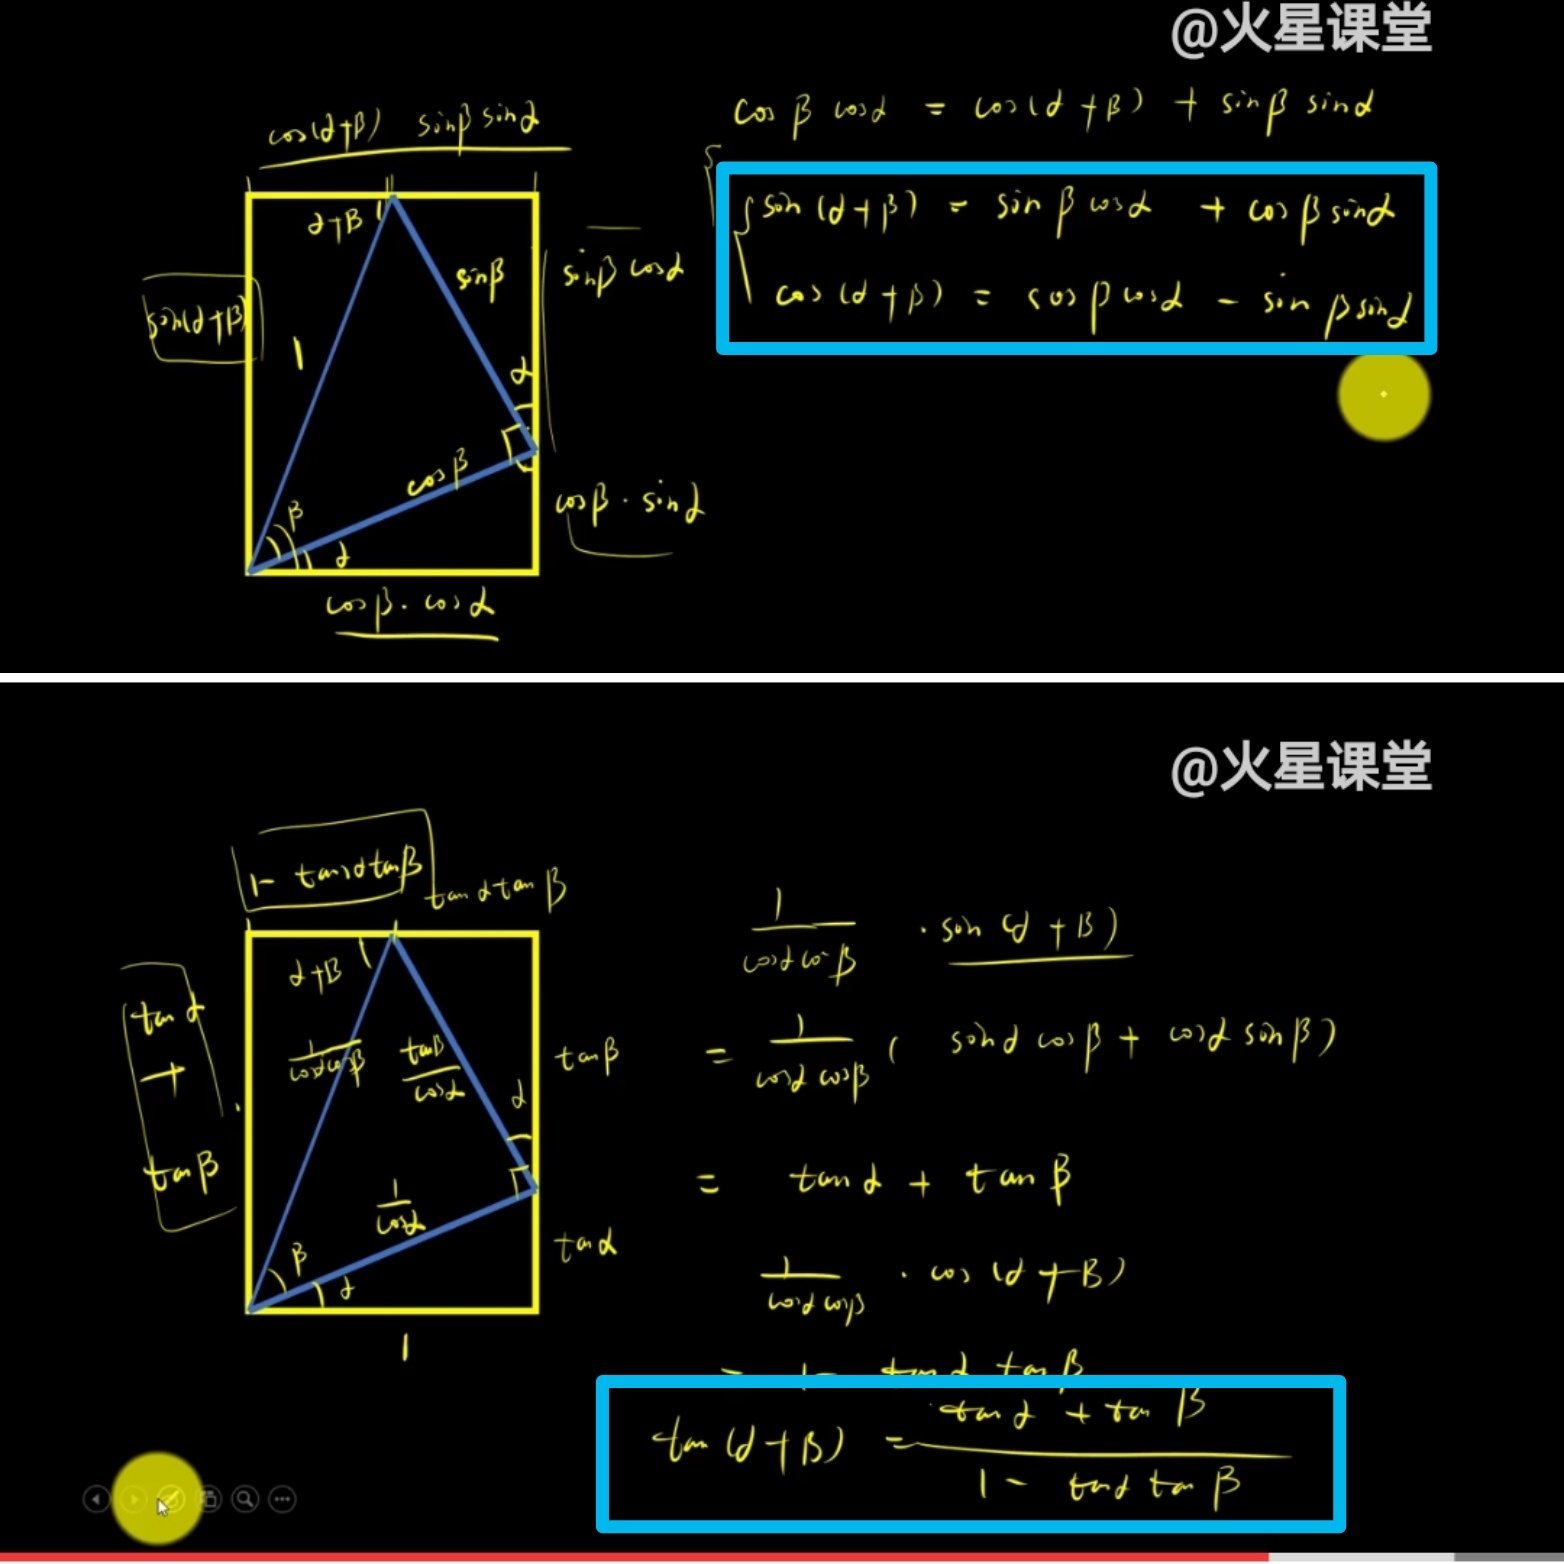 @火星课堂
cos(α+β) sinβ sinα
cosβ cosα = cos(α+β) + sinβ sinα
α+β
sinβ
sin(α+β)
1
sinβ cosα
sin(α+β) = sinβ cosα + cosβ sinα
cos(α+β) = cosβ cosα - sinβ sinα
α
cosβ
cosβ · sinα
β
α
cosβ · cosα
@火星课堂
1 - tanα tanβ
tanα tanβ
α+β
tanα
+
tanβ
1/cosα cosβ
tanβ/cosα
tanβ
α
1/cosα
tanα
β
α
1
1/cosα cosβ · sin(α+β)
= 1/cosα cosβ ( sinα cosβ + cosα sinβ )
= tanα + tanβ
1/cosα cosβ · cos(α+β)
= 1 - tanα tanβ
tan(α+β) = tanα + tanβ / 1 - tanα tanβ